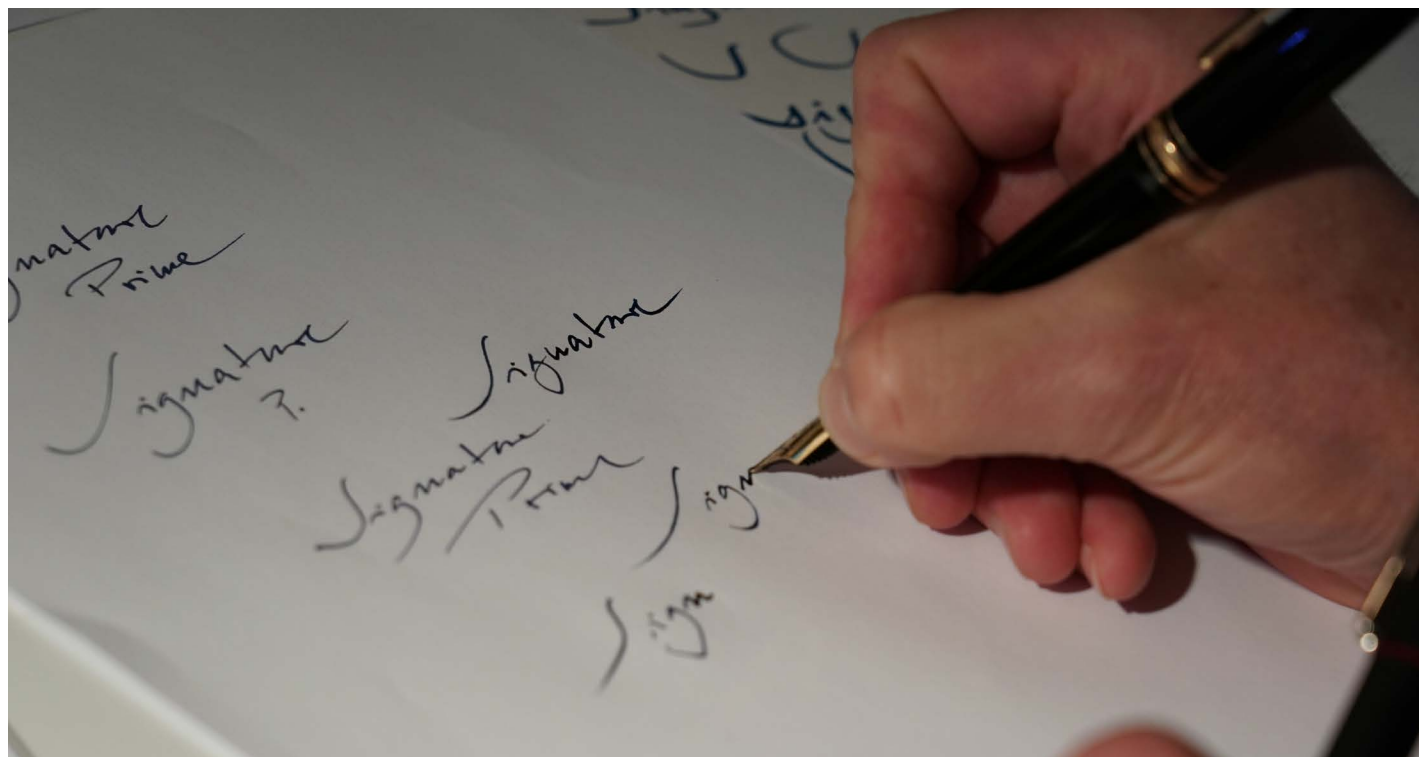 gnature
Prime
Signature
P.
Signature
Signature
Prime
Sign
Sign
Sig